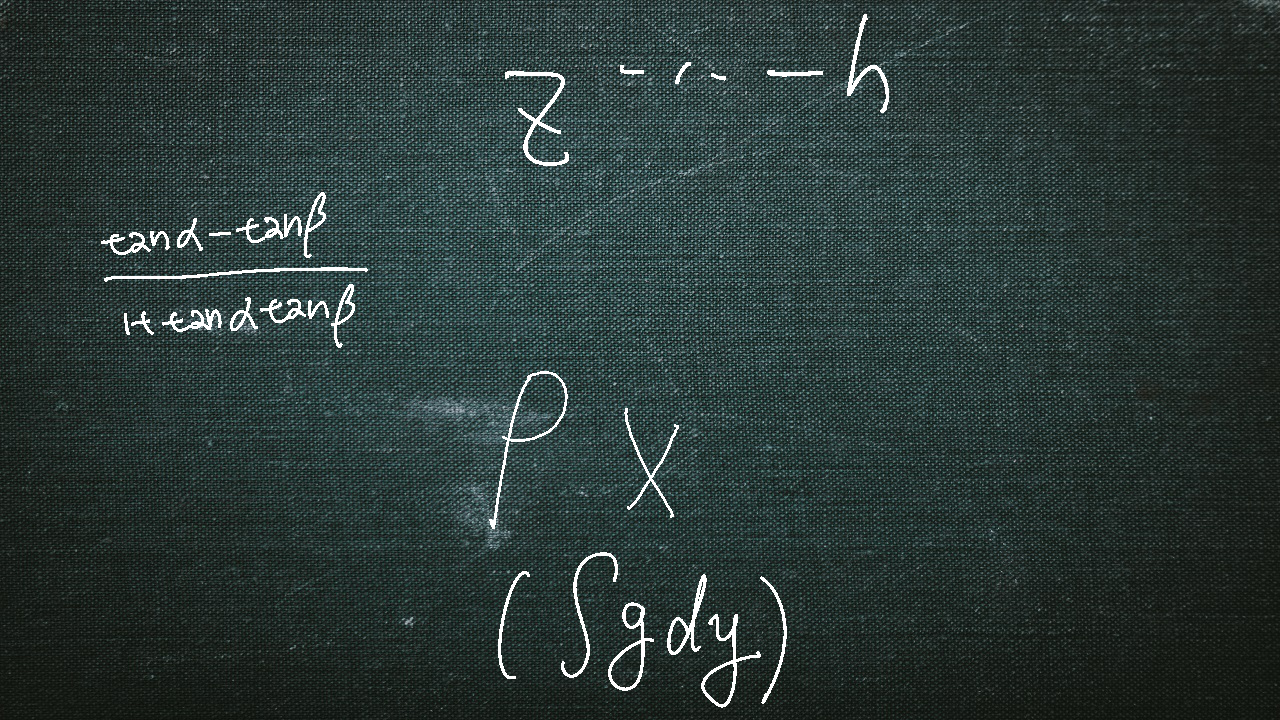 z^{-\cdots-h}
\frac{\tan\alpha-\tan\beta}{1+\tan\alpha\tan\beta}
\rho x
(\int g dy)